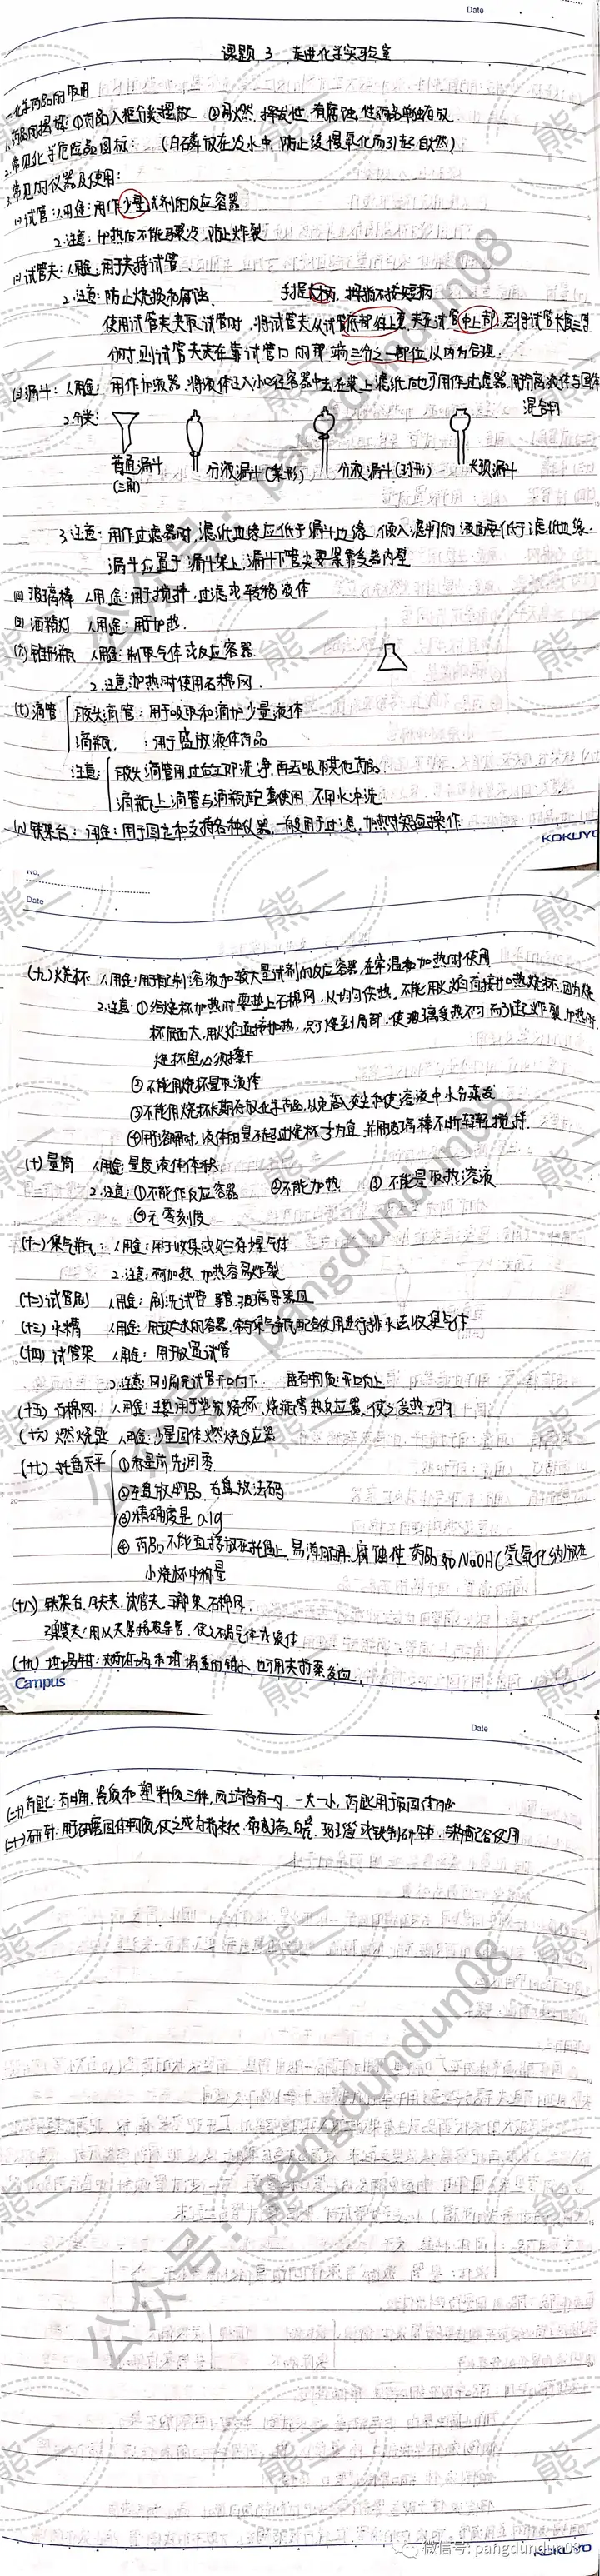 Date
课题 3 走进化学实验室
一.化学药品的取用
1.药品的摆放 ①药品入柜分类摆放 ②易燃、挥发性、有腐蚀性药品单独存放
2.常见化学危险品图标: (白磷放在冷水中,防止缓慢氧化而引起自燃)
3.常见的仪器及使用:
(一)试管: 1.用途:用作少量试剂的反应容器
2.注意:加热后不能骤冷,防止炸裂
(二)试管夹: 1.用途:用于夹持试管
2.注意:防止烧损和腐蚀. 手握长柄,拇指不按短柄
使用试管夹夹取试管时,将试管夹从试管底部往上套,夹在试管中上部.若将试管长度三等
分时,则试管夹夹在靠试管口的那端三分之一部位以内为合理.
(三)漏斗: 1.用途:用作加液器,将液体注入小口径容器中去.在装上滤纸后也可用作过滤器,用于分离液体与固体
混合物
2.分类:
普通漏斗 分液漏斗(梨形) 分液漏斗(球形) 长颈漏斗
(三角)
3.注意:用作过滤器时,滤纸边缘应低于漏斗边缘,倾入滤物的液面要低于滤纸边缘.
漏斗应置于漏斗架上,漏斗下管尖要紧靠受器内壁
(四)玻璃棒 1.用途:用于搅拌,过滤或转移液体
(五)酒精灯 1.用途:用于加热.
(六)锥形瓶 1.用途:制取气体或反应容器
2.注意:加热时使用石棉网.
(七)滴管 胶头滴管:用于吸取和滴加少量液体
滴瓶 :用于盛放液体药品
注意: 胶头滴管用过后立即洗净,再去吸取其他药品.
滴瓶上滴管与滴瓶配套使用,不用水冲洗
(八)铁架台: 用途:用于固定和支持各种仪器,一般用于过滤、加热等实验操作
KOKUYO
No.
Date
(九)烧杯 1.用途:用于配制溶液和较大量试剂的反应容器,在常温和加热时使用
2.注意:①给烧杯加热时要垫上石棉网,以均匀供热.不能用火焰直接加热烧杯,因为烧
杯底面大,用火焰直接加热,只可烧到局部,使玻璃受热不匀而引起炸裂.加热时,
烧杯壁必须擦干
②不能用烧杯量取液体
③不能用烧杯长期存放化学药品,以免落入灰尘和使溶液中水分蒸发
④用于溶解时,液体的量不超过烧杯1/3为宜,并用玻璃棒不断轻轻搅拌.
(十)量筒 1.用途:量度液体体积
2.注意:①不能作反应容器 ②不能加热 ③不能量取热溶液
④无零刻度
(十一)集气瓶: 1.用途:用于收集或贮存少量气体
2.注意:不可加热,加热容易炸裂
(十二)试管刷 1.用途:刷洗试管等玻璃导器皿
(十三)水槽 1.用途:用于贮水的容器,常与集气瓶配合使用进行排水法收集气体
(十四)试管架 1.用途:用于放置试管
2.注意:
(十五)石棉网 1.用途:主要用于垫放烧杯、烧瓶等热反应器,使之受热均匀
(十六)燃烧匙 1.用途:少量固体燃烧反应器
(十七)托盘天平 ①称量前先调零
②左盘放物品,右盘放法码
③精确度是0.1g
④药品不能直接放在托盘上,易潮解、腐蚀性药品如NaOH(氢氧化钠)放在
小烧杯中称量
(十八)铁架台、铁夹、试管夹、三脚架、石棉网.
弹簧夹:用以夹紧橡皮导管,使之不漏气体或液体
(十九)坩埚钳:夹持坩埚和坩埚盖的钳子,也可用来夹持蒸发皿.
Campus
Date
(二十)药匙:有牛角、瓷质和塑料质三种,两端各有一勺,一大一小,药匙用于取固体药品
(二十一)研钵:用于研磨固体物质,使之成为粉末状.有玻璃、白瓷、玛瑙或铁制研钵,与杵配合使用
KOKUYO
微信号: pangdundun08
公众号:pangdundun08
熊二